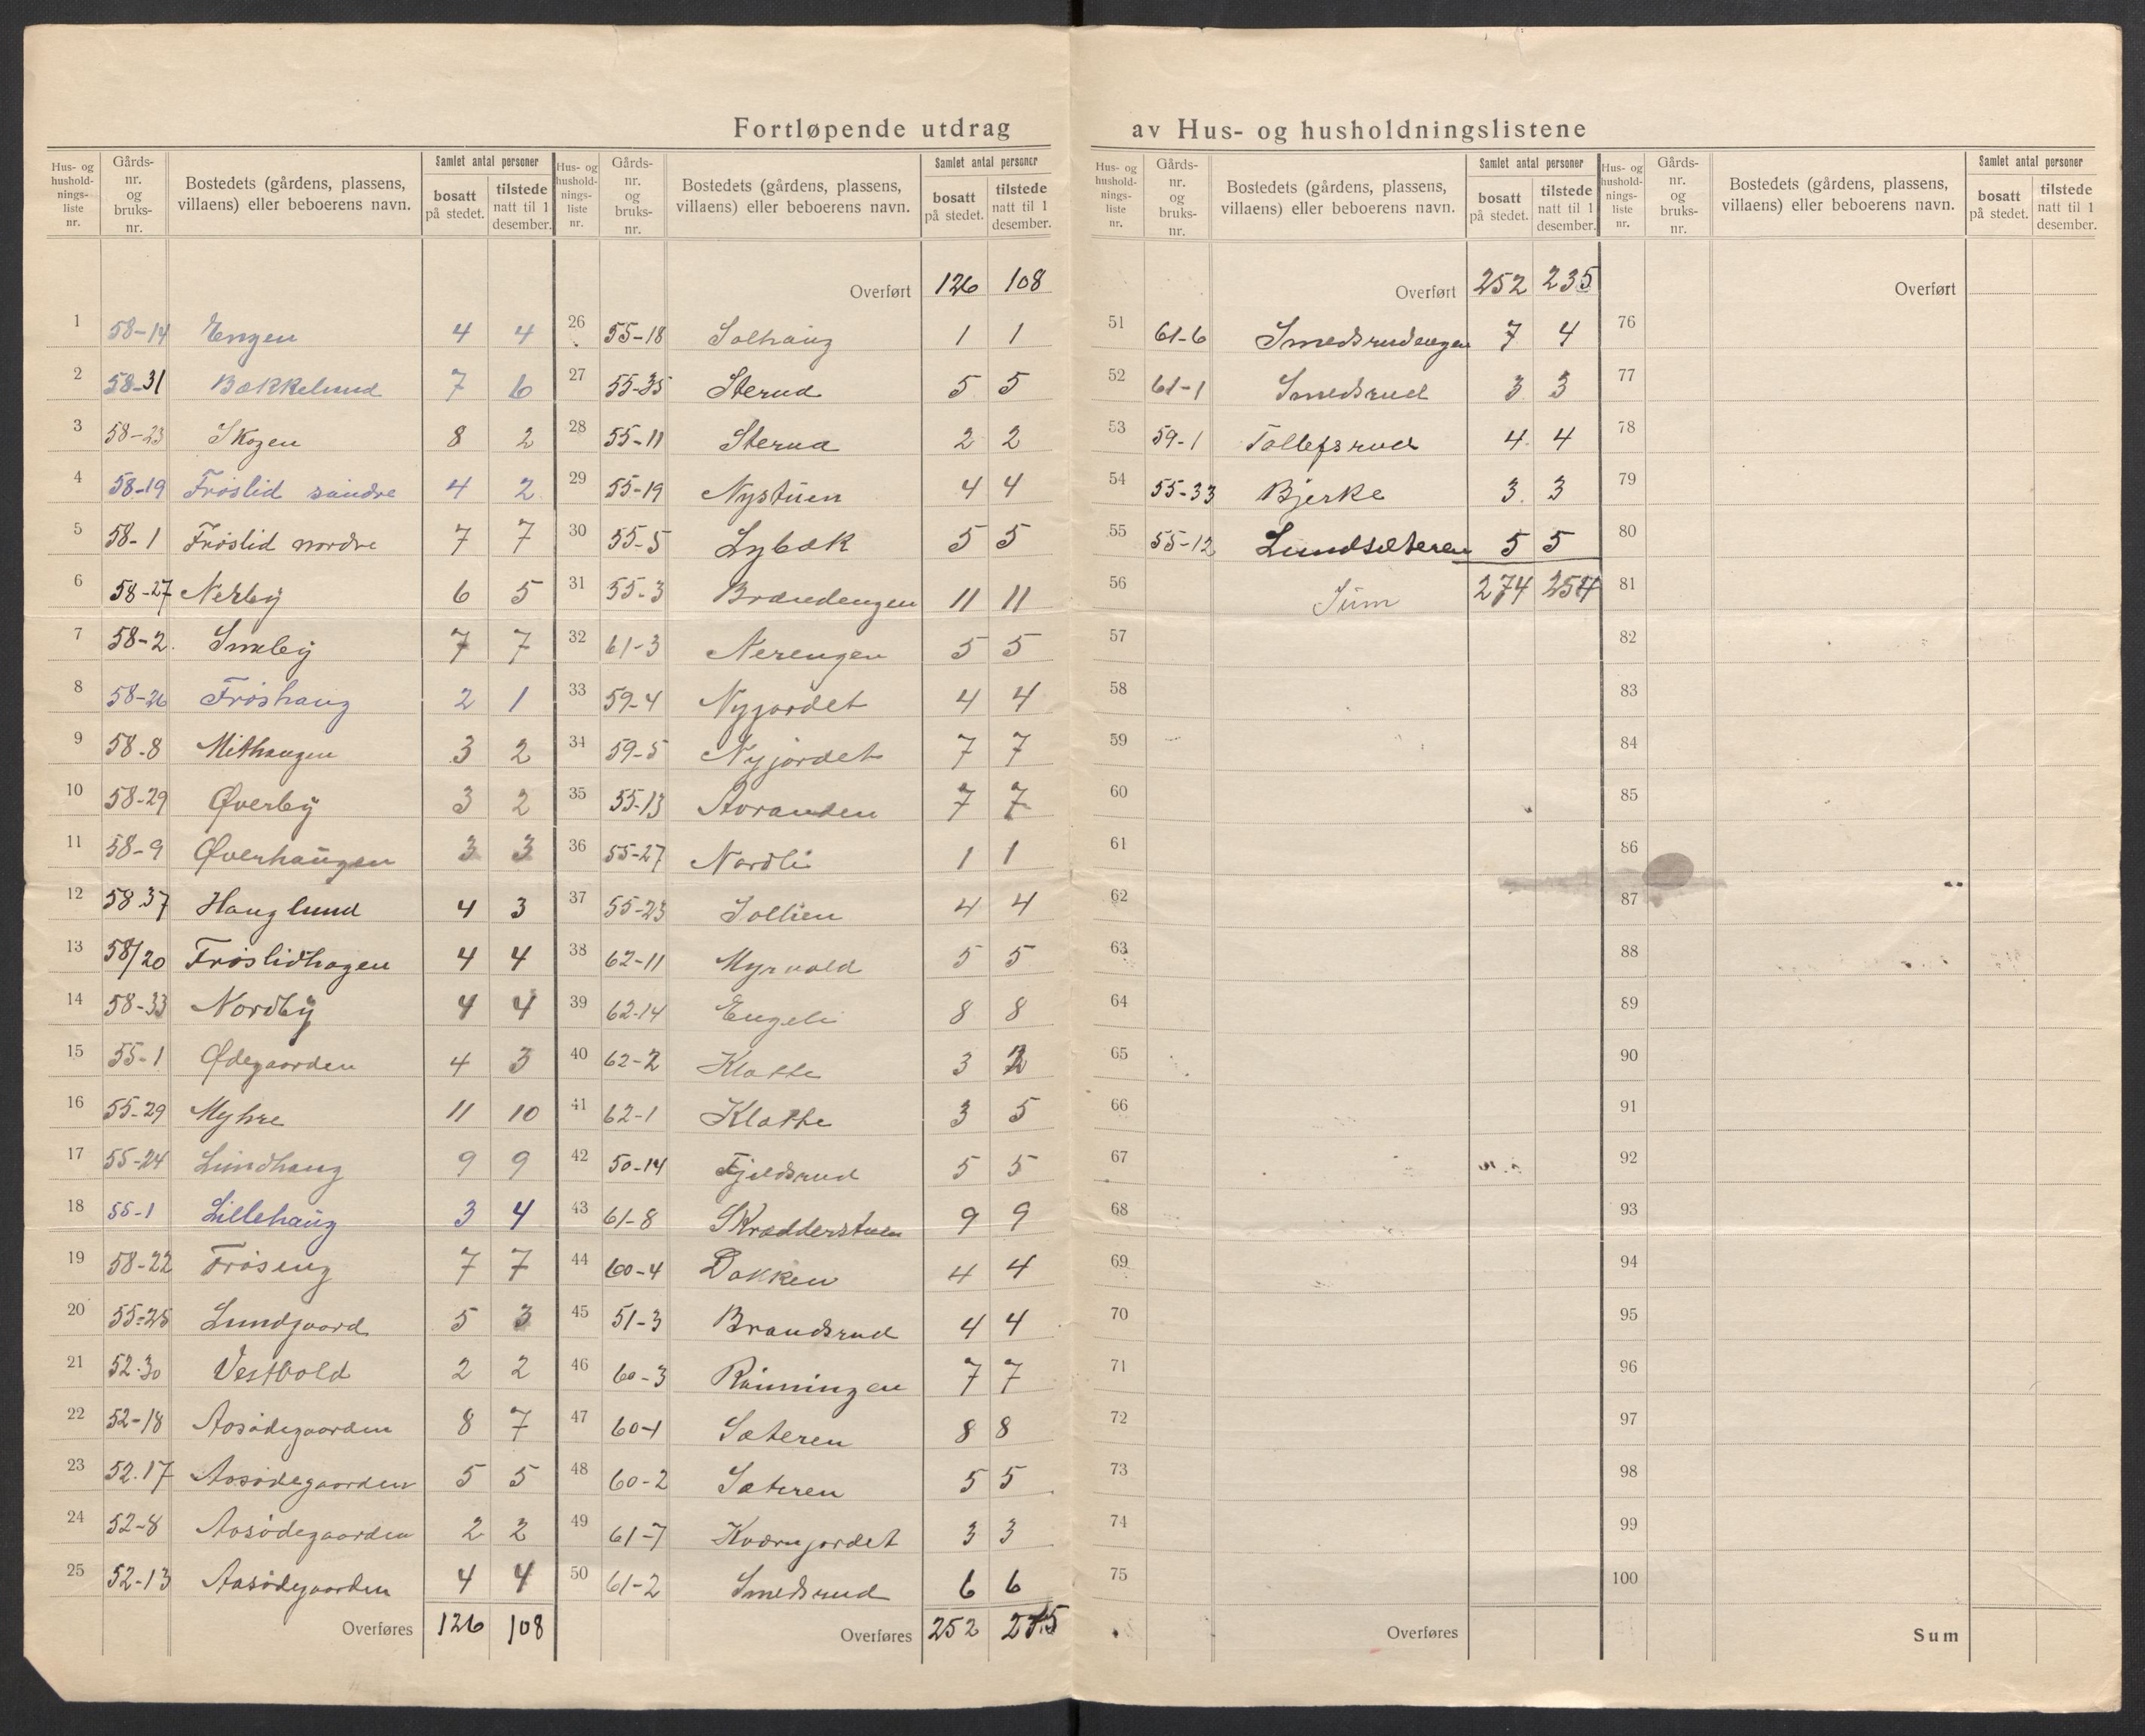 Fortløpende utdrag av Hus- og husholdningslistene
Hus- og hushold-nings-liste nr. | Gårds-nr. og bruks-nr. | Bostedets (gårdens, plassens, villaens) eller beboerens navn. | Samlet antal personer: bosatt på stedet. | tilstede natt til 1 desember.
1 58-14 Engen 4 4
2 58-31 Bækkelund 7 6
3 58-23 Skogen 8 2
4 58-19 Frøslid søndre 4 2
5 58-1 Frøslid nordre 7 7
6 58-27 Nerby 6 5
7 58-2 Smeby 7 7
8 58-26 Frøshaug 2 1
9 58-8 Mithaugen 3 2
10 58-29 Øverby 3 2
11 58-9 Øverhaugen 3 3
12 58 37 Hauglund 4 3
13 58/20 Frøslidhagen 4 4
14 58-33 Nordby 4 4
15 55-1 Ødegaarden 4 3
16 55-29 Myhre 11 10
17 55-24 Lundhaug 9 9
18 55-1 Lillehaug 3 4
19 58-22 Frøseng 7 7
20 55-25 Lundgaard 5 3
21 52-30 Vestvold 2 2
22 52-18 Aasødegaarden 8 7
23 52.17 Aasødegaarden 5 5
24 52-8 Aasødegaarden 2 2
25 52-13 Aasødegaarden 4 4
Overføres 126 108
Hus- og hushold-nings-liste nr. | Gårds-nr. og bruks-nr. | Bostedets (gårdens, plassens, villaens) eller beboerens navn. | Samlet antal personer: bosatt på stedet. | tilstede natt til 1 desember.
Overført 126 108
26 55-18 Solhaug 1 1
27 55-35 Sterud 5 5
28 55-11 Sterud 2 2
29 55-19 Nystuen 4 4
30 55-5 Lybæk 5 5
31 55-3 Brændengen 11 11
32 61-3 Nerengen 5 5
33 59-4 Nyjordet 4 4
34 59-5 Nyjordet 7 7
35 55-13 Aaranden 7 7
36 55-27 Nordli 1 1
37 55-23 Sollien 4 4
38 62-11 Myrvold 5 5
39 62-14 Engeli 8 8
40 62-2 Klatte 3 2
41 62-1 Klatte 3 5
42 50-14 Fjeldsrud 5 5
43 61-8 Skrædderstuen 9 9
44 60-4 Dokken 4 4
45 51-3 Brandsrud 4 4
46 60-3 Rønningen 7 7
47 60-1 Sæteren 8 8
48 60-2 Sæteren 5 5
49 61-7 Kværnjordet 3 3
50 61-2 Smedsrud 6 6
Overføres 252 235
Hus- og hushold-nings-liste nr. | Gårds-nr. og bruks-nr. | Bostedets (gårdens, plassens, villaens) eller beboerens navn. | Samlet antal personer: bosatt på stedet. | tilstede natt til 1 desember.
Overført 252 235
51 61-6 Smedsrudengen 7 4
52 61-1 Smedsrud 3 3
53 59-1 Tollefsrud 4 4
54 55-33 Bjerke 3 3
55 55-12 Lundsæteren 5 5
56 Sum 274 254
57
58
59
60
61
62
63
64
65
66
67
68
69
70
71
72
73
74
75
Overføres
Hus- og hushold-nings-liste nr. | Gårds-nr. og bruks-nr. | Bostedets (gårdens, plassens, villaens) eller beboerens navn. | Samlet antal personer: bosatt på stedet. | tilstede natt til 1 desember.
Overført
76
77
78
79
80
81
82
83
84
85
86
87
88
89
90
91
92
93
94
95
96
97
98
99
100
Sum